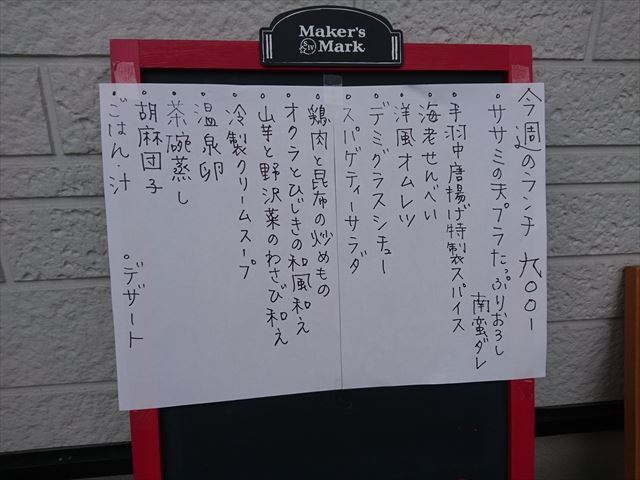 Maker's
SIV Mark
今週のランチ 九〇〇ー
・ササミの天プラたっぷりおろし
南蛮ダレ
・手羽中唐揚げ特製スパイス
・海老せんべい
・洋風オムレツ
・デミグラスシチュー
・スパゲティーサラダ
・鶏肉と昆布の炒めもの
・オクラとひじきの和風和え
・山芋と野沢菜のわさび和え
・冷製クリームスープ
・温泉卵
・茶碗蒸し
・胡麻団子
・ごはん・汁 ・デザート